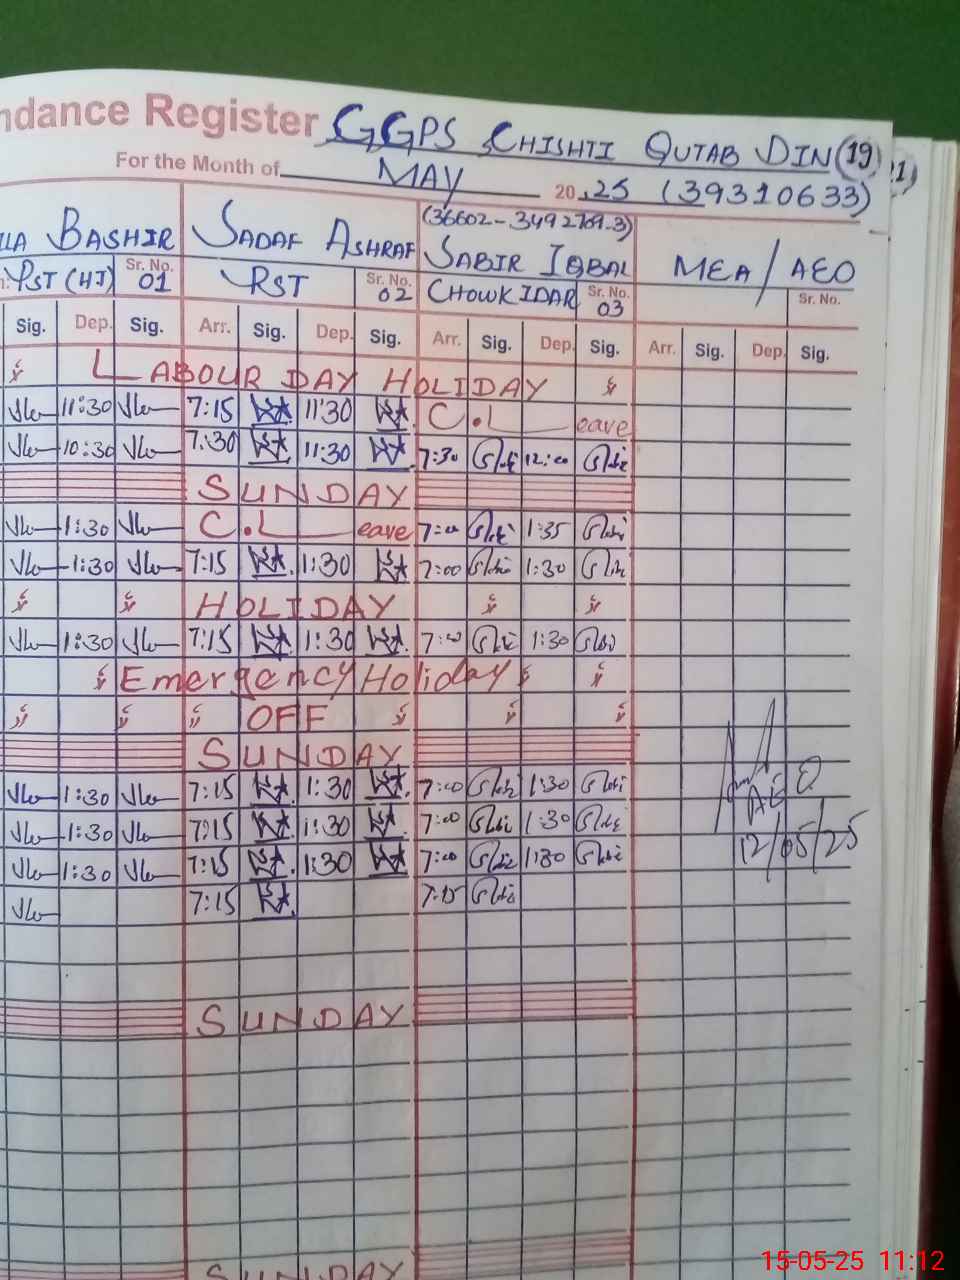 ndance Register GGPS CHISHTI QUTAB DIN (19)
For the Month of MAY 2025 (39310633)
(36602-3492769-3)
LLA BASHIR SADAF ASHRAF SABIR IQBAL MEA/AEO
PST (HI) Sr. No. 01 PST Sr. No. 02 CHOWKIDAR Sr. No. 03 Sr. No.
Sig. Dep. Sig. Arr. Sig. Dep. Sig. Arr. Sig. Dep. Sig. Arr. Sig. Dep. Sig.
LABOUR DAY HOLIDAY
11:30 7:15 11:30 C.Leave
10:30 7:30 11:30 7:30 12:00
SUNDAY
1:30 C.Leave 7:00 1:35
1:30 7:15 1:30 7:00 1:30
HOLIDAY
1:30 7:15 1:30 7:00 1:30
Emergency Holiday
OFF
SUNDAY
1:30 7:15 1:30 7:00 1:30
1:30 7:15 1:30 7:00 1:30
1:30 7:15 1:30 7:00 1:30
7:15 7:15
AEO
12/05/25
SUNDAY
SUNDAY
15-05-25 11:12